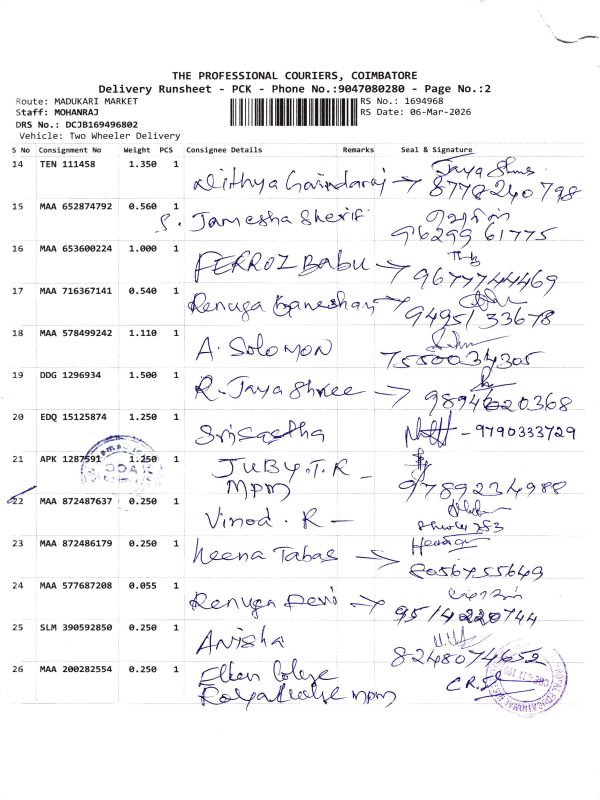 THE PROFESSIONAL COURIERS, COIMBATORE
Delivery Runsheet - PCK - Phone No.:9047080280 - Page No.:2
Route: MADUKARI MARKET RS No.: 1694968
Staff: MOHANRAJ RS Date: 06-Mar-2026
DRS No.: DCJB169496802
Vehicle: Two Wheeler Delivery
S No Consignment No Weight PCS Consignee Details Remarks Seal & Signature
14 TEN 111458 1.350 1 Nithya Govindaraj → 8778240798
15 MAA 652874792 0.560 1 S. Jamesha Sherif 96299 61775
16 MAA 653600224 1.000 1 FERROZ Babu → 9677744469
17 MAA 716367141 0.540 1 Renuga Ganeshan → 9495133678
18 MAA 578499242 1.110 1 A. SOLOMON 7550034305
19 DDG 1296934 1.500 1 R. Jaya Shree → 9894620368
20 EDQ 15125874 1.250 1 Sri Sastha - 9790333729
21 APK 1287591 1.250 1 JUBY.T.R - 9789234988
MPM
22 MAA 872487637 0.250 1 Vinod . R -
23 MAA 872486179 0.250 1 Heena Tabas → 8056755649
24 MAA 577687208 0.055 1 Renuga Devi → 9514220744
25 SLM 390592850 0.250 1 Anisha 8248074652
26 MAA 200282554 0.250 1
MPM